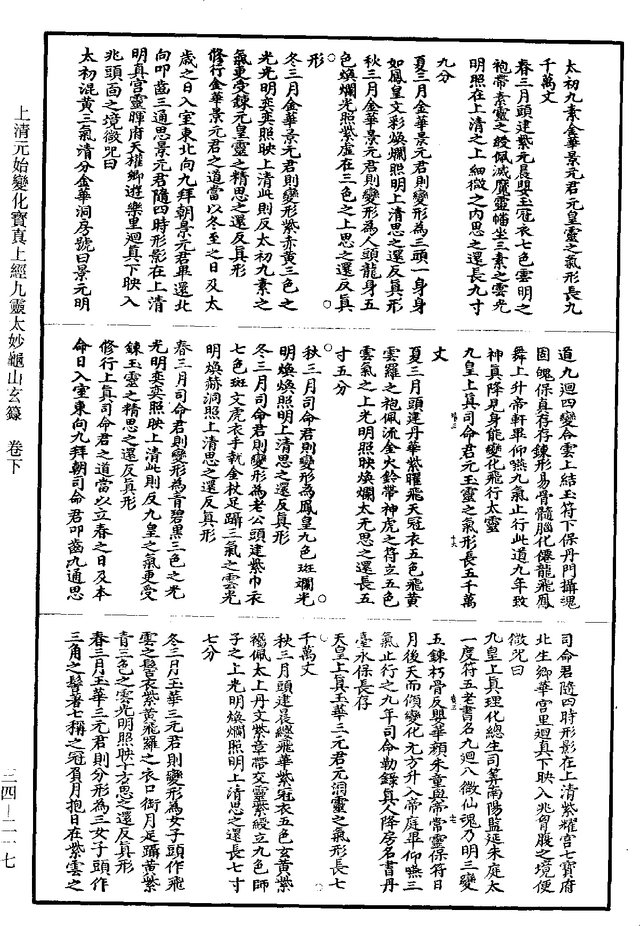 太初九素金華景元君元皇靈之氣形長九
千萬丈
春三月頭建紫元晨嬰玉冠衣七色雲明之
袍帶素靈之綬佩滅魔靈幡坐三素之雲光
明照在上清之上細微之內思之還長九寸
九分
夏三月金華景元君則變形為三頭一身身
如鳳皇文彩煥爛照明上清思之還反真形
秋三月金華景元君則變形為人頭龍身五
色煥爛光照紫虛在三色之上思之還反真
形
冬三月金華景元君則變形紫赤黃三色之
光光明奕奕照映上清此則反太初九素之
氣更受鍊元皇靈之精思之還反真形
修行金華景元君之道當以冬至之日及太
歲之日入室東北向九拜朝景元君畢還北
向叩齒三通思景元君隨四時形影在上清
明真宮靈暉府天權鄉遊樂里迴真下映入
兆頭面之境微咒曰
太初混黃三氣清分金華洞房號曰景元明
道九迴四變合雲上結玉符下保丹門攝魂
固魄保真存存鍊形易骨髓腦化僊龍飛鳳
舞上升帝軒畢仰嚥九氣止行此道九年致
神真降見身能變化飛行太靈
九皇上真司命君元玉靈之氣形長五千萬
丈
夏三月頭建丹華紫曜飛天冠衣五色飛黃
雲羅之袍佩流金火鈴帶神虎之符立五色
雲氣之上光明照映煥爛太無思之還長五
寸五分
秋三月司命君則變形為鳳皇九色斑爛光
明煥煥照明上清思之還反真形
冬三月司命君則變形為老公頭建紫巾衣
七色斑文虎衣手執金杖足躡三氣之雲光
明煥赫洞照上清思之還反真形
春三月司命君則變形為青碧黑三色之光
光明奕奕照映上清此則反九皇之氣更受
鍊玉靈之精思之還反真形
修行上真司命君之道當以立春之日及本
命日入室東向九拜朝司命君叩齒九通思
司命君隨四時形影在上清紫耀宮七寶府
北生鄉華宮里迴真下映入兆胷腹之境便
微咒曰
九皇上真理化總生司筭南陽監延朱庭太
一度符五老書名九迴八微仙魂乃明三變
五鍊朽骨反嬰華顏朱童與帝常靈保符日
月後天而傾變化无方升入帝庭畢仰嚥三
氣止行之九年司命勒錄真人降房名書丹
臺永保長存
天皇上真玉華三元君元洞靈之氣形長七
千萬丈
秋三月頭建晨纓飛華紫冠衣五色玄黃紫
襡佩太上丹文紫章帶交靈紫綬立九色師
子之上光明煥爛照明上清思之還長七寸
七分
冬三月玉華三元君則變形為女子頭作飛
雲之髻衣紫黃飛羅之衣口銜月足躡黃紫
青三色之雲光明照映十方思之還反真形
春三月玉華三元君則分形為三女子頭作
三角之髻著七稱之冠負月抱日在紫雲之
上清元始變化寶真上經九靈太妙龜山玄籙 卷下
三四—二一七